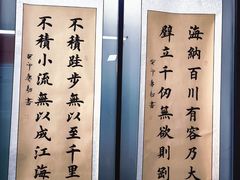 海納百川有容乃大
壁立千仞無欲則剛
不積跬步無以至千里
不積小流無以成江海